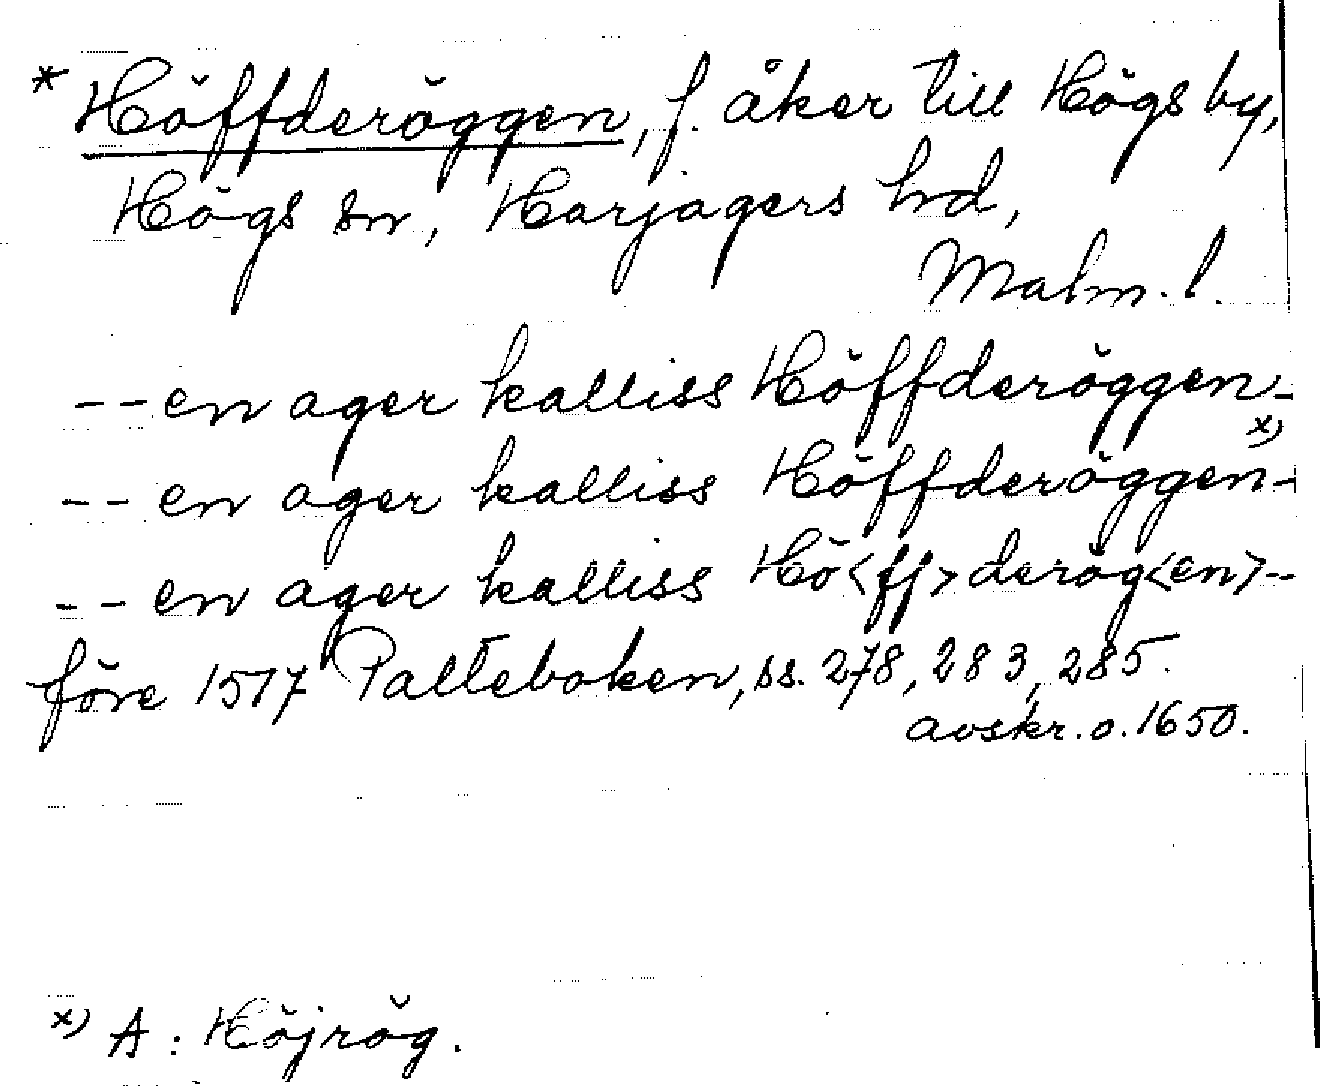 * Höffderöggen, f. åker till Högs by,
Högs sn, Harjagers hd,
Malm. l.
-- en ager kalliss Höffderöggen -
-- en ager kalliss Höffderöggen x) -
-- en ager kalliss Hö<ff>derög<en> --
före 1517 Palteboken, ss. 278, 283, 285.
avskr. o. 1650.
x) A: Höjrög.